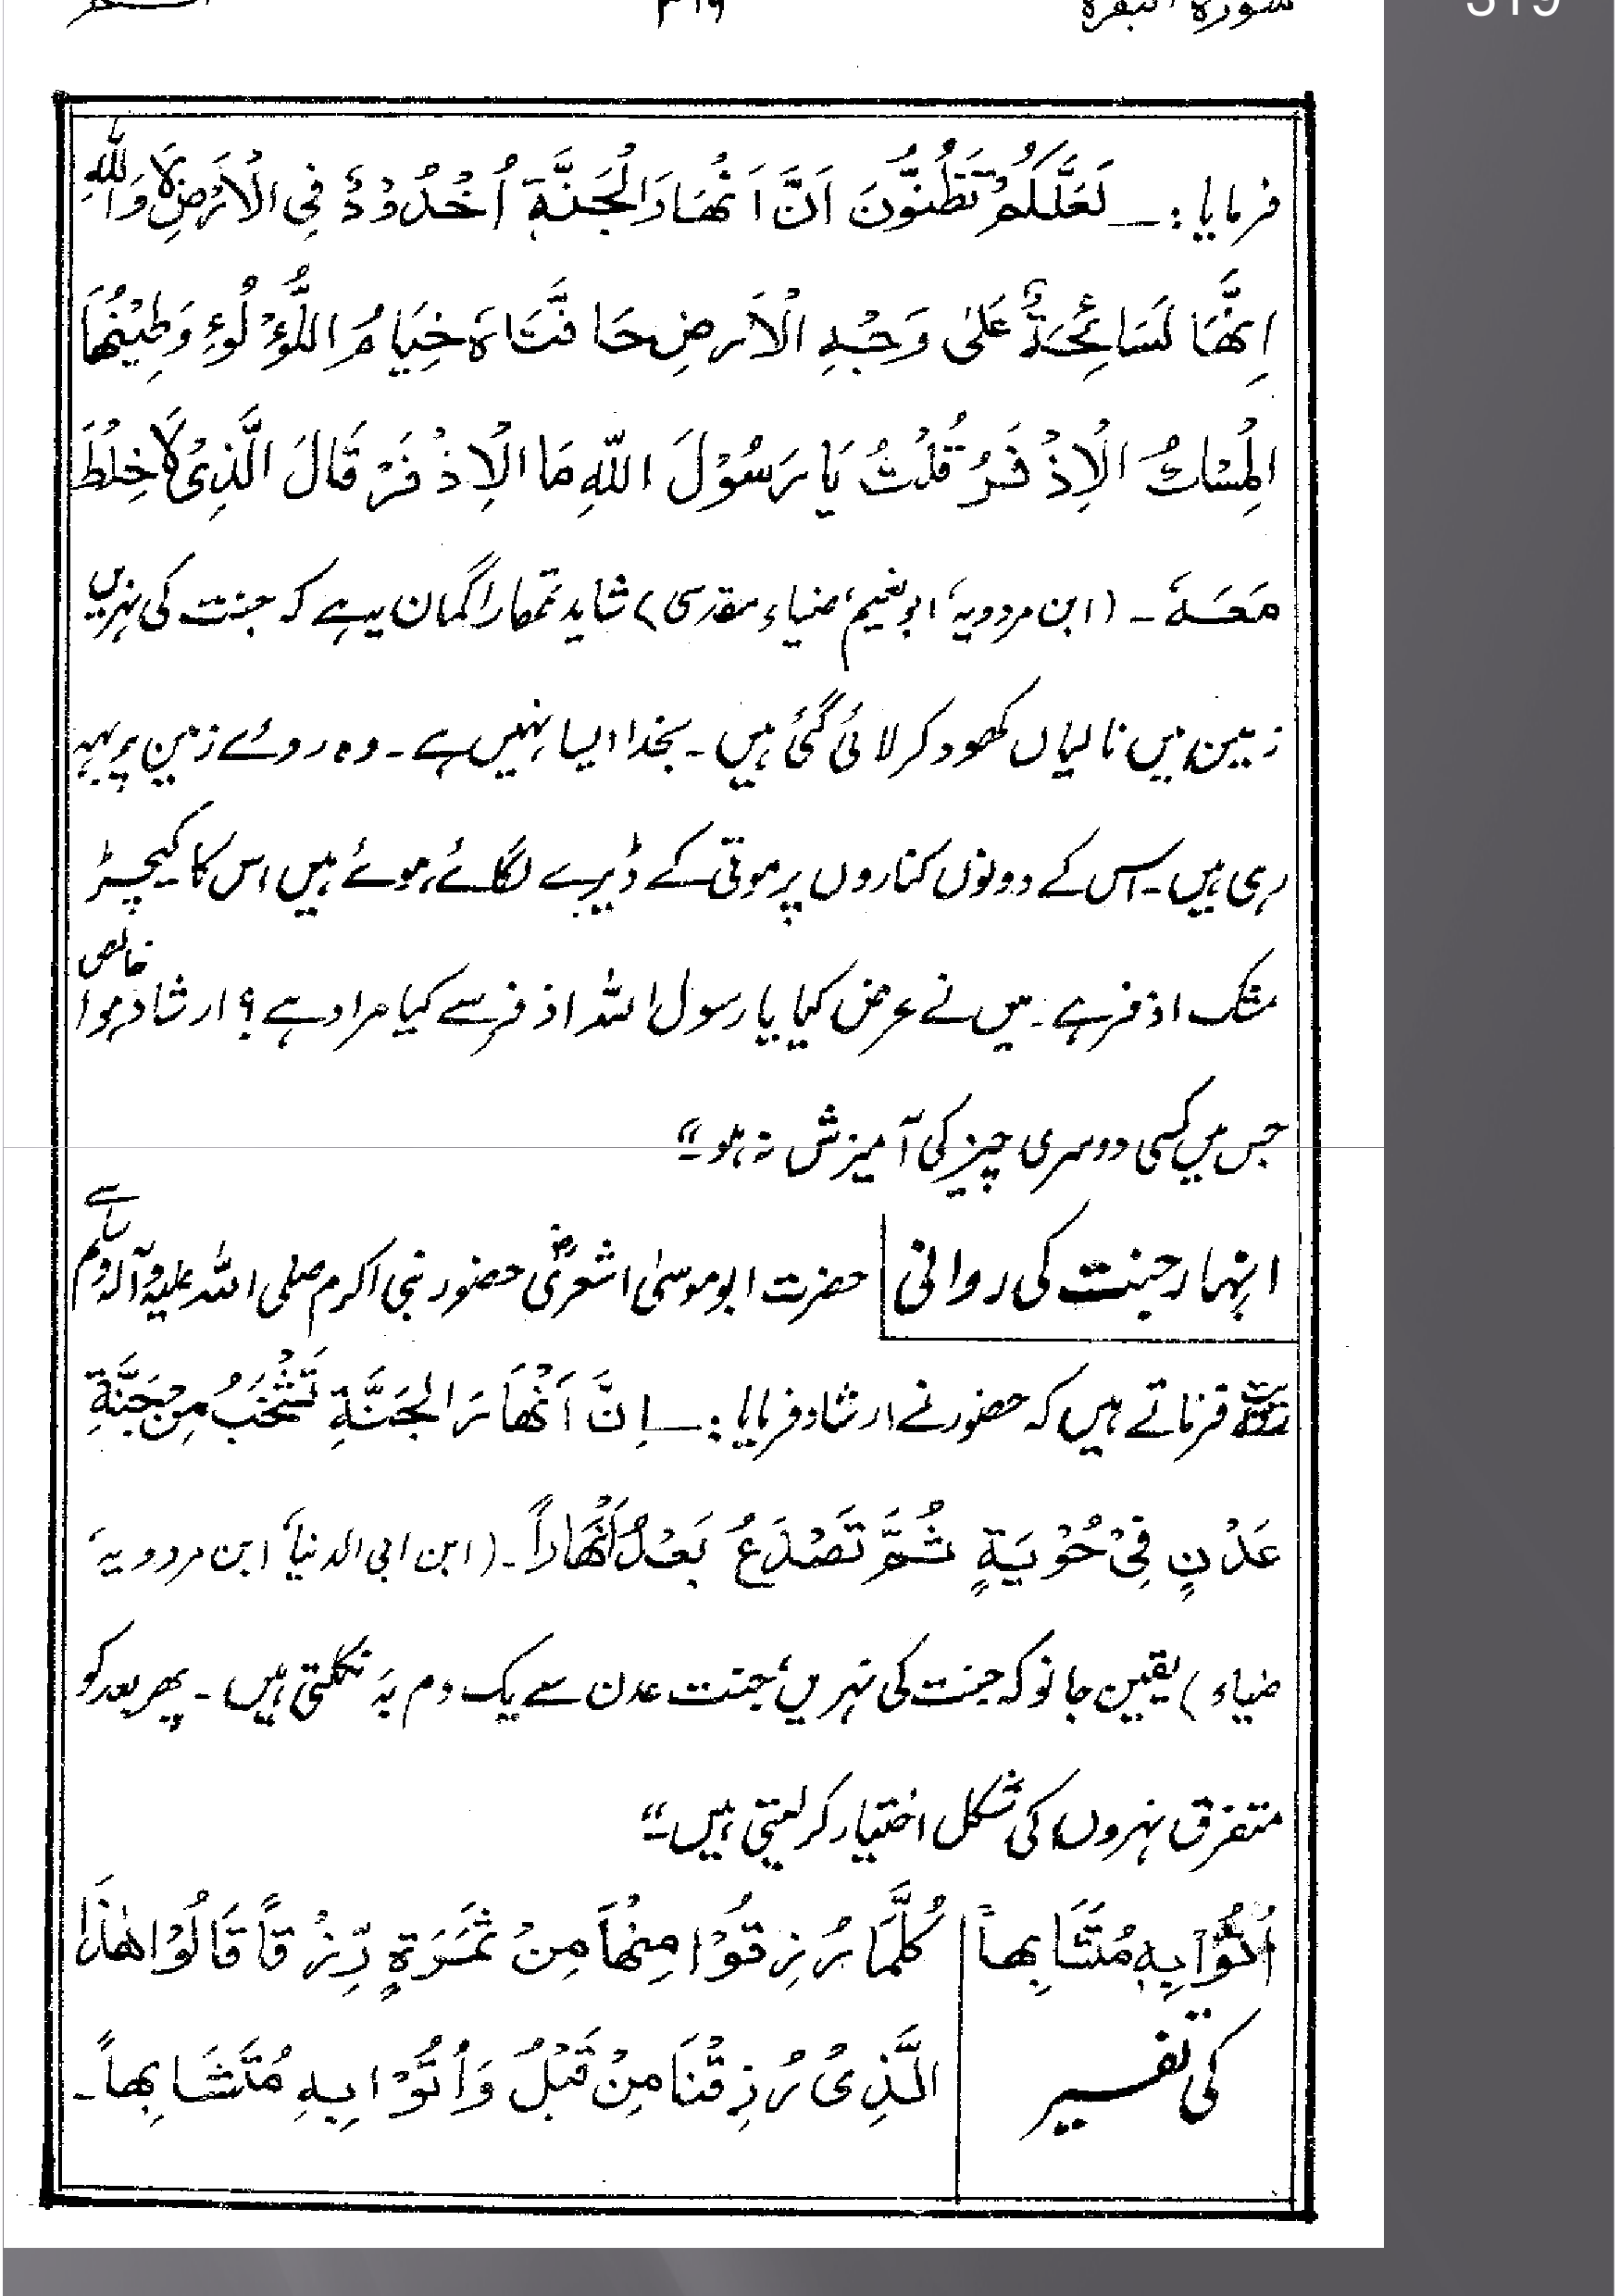 سورۃ البقرہ ۳۱۹
319
فرمایا :ـ لَعَلَّكُمْ تَظُنُّوْنَ اَنَّ اَنْهَارَ الْجَنَّةِ اُخْدُوْدٌ فِی الْاَرْضِ لَا وَاللّٰهِ
اِنَّهَا لَسَائِحَةٌ عَلٰی وَجْهِ الْاَرْضِ حَافَتَاهُ خِيَامُ اللُّؤْلُؤِ وَطِيْنُهَا
الْمِسْكُ الْاِذْفَرُ قُلْتُ يَا رَسُوْلَ اللّٰهِ مَا الْاِذْفَرْ قَالَ الَّذِیْ لَا خِلْطَ
مَعَهٗ ۔ (ابن مردویہ، ابونعیم، ضیاء مقدسی) شاید تمھارا گمان یہ ہے کہ جنت کی نہریں
زمین میں نالیاں کھود کر لائی گئی ہیں ۔ بخدا ایسا نہیں ہے ۔ وہ روئے زمین پر بہہ
رہی ہیں ۔ اس کے دونوں کناروں پر موتی کے ڈیرے لگائے ہوئے ہیں اس کا کیچڑ
مشک اذفر ہے ۔ میں نے عرض کیا یا رسول اللہ اذفر سے کیا مراد ہے ؟ ارشاد ہوا خالص
جس میں کسی دوسری چیز کی آمیزش نہ ہو ۔“
انہار جنت کی روانی
حضرت ابو موسیٰ اشعریؓ حضور نبی اکرم صلی اللہ علیہ وآلہ وسلم سے
روایت فرماتے ہیں کہ حضور نے ارشاد فرمایا :ـ اِنَّ اَنْهَارَ الْجَنَّةِ تَشْخَبُ مِنْ جَنَّةِ
عَدْنٍ فِیْ حُوْبَةٍ ثُمَّ تَصْدَعُ بَعْدُ اَنْهَاراً ۔ (ابن ابی الدنیا، ابن مردویہ،
ضیاء) یقین جانو کہ جنت کی نہریں، جنت عدن سے یک دم بہ نکلتی ہیں ۔ پھر بعد کو
متفرق نہروں کی شکل اختیار کر لیتی ہیں ۔“
اُتُوْا بِهٖ مُتَشَابِهاً
کی تفسیر
كُلَّمَا رُزِقُوْا مِنْهَا مِنْ ثَمَرَةٍ رِّزْقاً قَالُوْا هٰذَا
الَّذِیْ رُزِقْنَا مِنْ قَبْلُ وَاُتُوْا بِهٖ مُتَشَابِهاً ۔